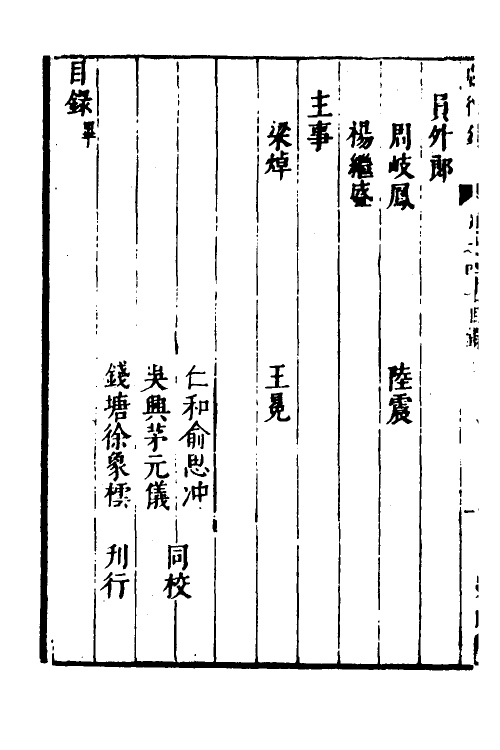 員外郎
周岐鳳　陸震
楊繼盛
主事
梁焯　王冕
仁和俞思冲
吳興茅元儀　同校
錢塘徐象橒　刊行
目錄畢